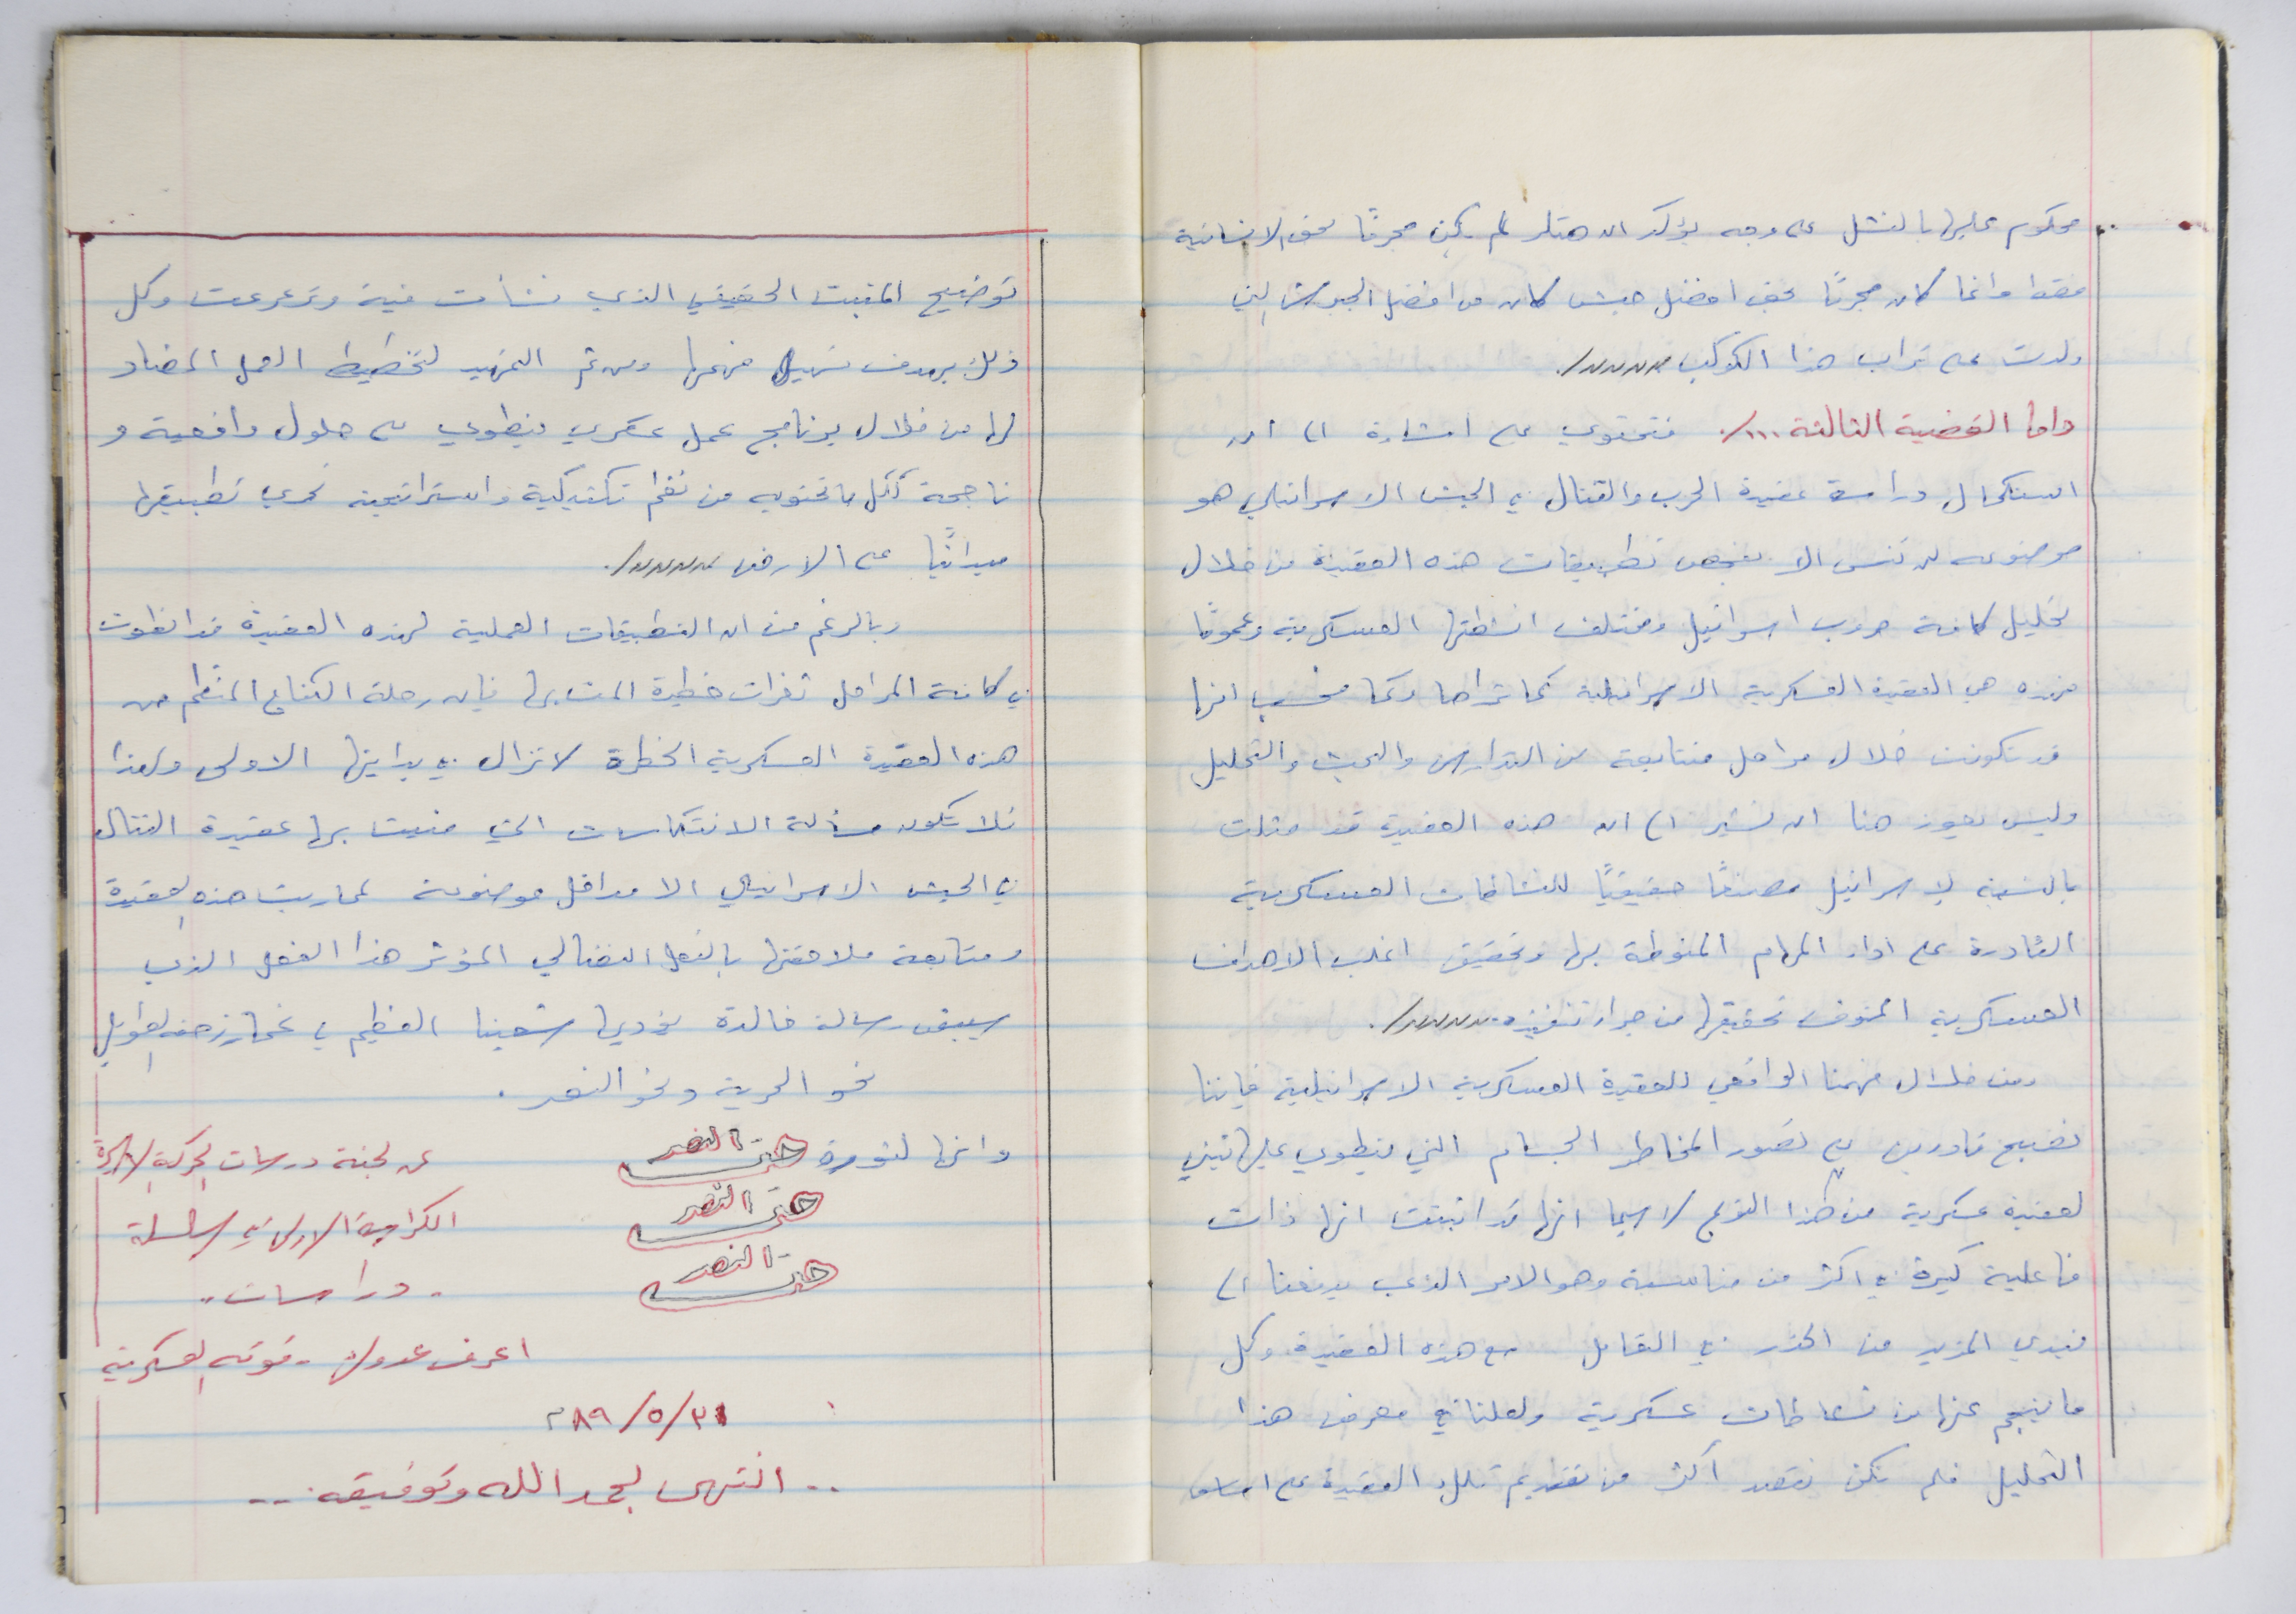 محكوم عليها بالفشل على وجه يؤكد ان هتلر لم يكن مجرمًا بحق الانسانية
فقط وانما كان مجرمًا بحق افضل جيش كان من افضل الجيوش التي
ولدت على تراب هذا الكوكب ./
واما القضية الثالثة .../. فتحتوي على اشارة الى ان
استكمال دراسة عقيدة الحرب والقتال في الجيش الاسرائيلي هو
موضوع لن تنسى الا بفحص تطبيقات هذه العقيدة من خلال
تحليل كافة حروب اسرائيل ومختلف انشطتها العسكرية وعمومًا
فهذه هي العقيدة العسكرية الاسرائيلية كما نراها وكما نحسب انها
قد تكونت خلال مراحل متتابعة من التدارس والبحث والتحليل
وليس يعوز هنا ان نشير الى ان هذه العقيدة قد مثلت
بالنسبة لاسرائيل مصنعًا حقيقيًا للنشاطات العسكرية
القادرة على اداء المهام المنوطة بها وتحقيق اغلب الاهداف
العسكرية المنوي تحقيقها من جراء تنفيذه ./
ومن خلال فهمنا الواقعي للعقيدة العسكرية الاسرائيلية فاننا
نصبح قادرين على تصور المخاطر الجسام التي ينطوي عليها تبني
لعقيدة عسكرية من هذا النوع لا سيما انها قد اثبتت انها ذات
فاعلية كبيرة في اكثر من مناسبة وهو الامر الذي يدفعنا الى
نبدي المزيد من الحذر في التعامل مع هذه العقيدة وكل
ما ينجم عنها من نشاطات عسكرية ولعلنا في معرض هذا
التحليل فلم نكن نقصد أكثر من تقديم تلك العقيدة على اساس
توضيح المنبت الحقيقي الذي نشأت فيه وترعرعت وكل
ذلك بهدف تسهيل فهمها ومن ثم التمهيد لتخطيط العمل المضاد
لها من خلال برنامج عمل عسكري ينطوي على حلول واقعية و
ناجحة لكل ما تحتويه من نظم تكتيكية واستراتيجية تجري تطبيقها
ميدانيًا على الارض ./
وبالرغم من ان التطبيقات العملية لهذه العقيدة قد انطوت
في كافة المراحل ثغرات خطيرة فان رحلة الكفاح المنظم من
هذه العقيدة العسكرية الخطرة لا تزال في بدايتها الاولى ولهذا
فلا تكون مسألة الانتكاسات التي منيت بها عقيدة القتال
في الجيش الاسرائيلي الا مداخل موضوعية لمحاربة هذه العقيدة
ومتابعة ملاحقتها بالفعل النضالي المؤثر هذا الفعل الذي
سيبقى رسالة خالدة يؤديها شعبنا العظيم في غمار زحفه الطويل
نحو الحرية ونحو النصر .
وانها لثورة حتى النصر
حتى النصر
حتى النصر
عن لجنة دراسات الحركة الاسيرة
الكراسة الاولى في سلسلة
- دراسات -
اعرف عدوك - قوته العسكرية
٣١/٥/٨٩م
.. انتهى بحمد الله وتوفيقه ..